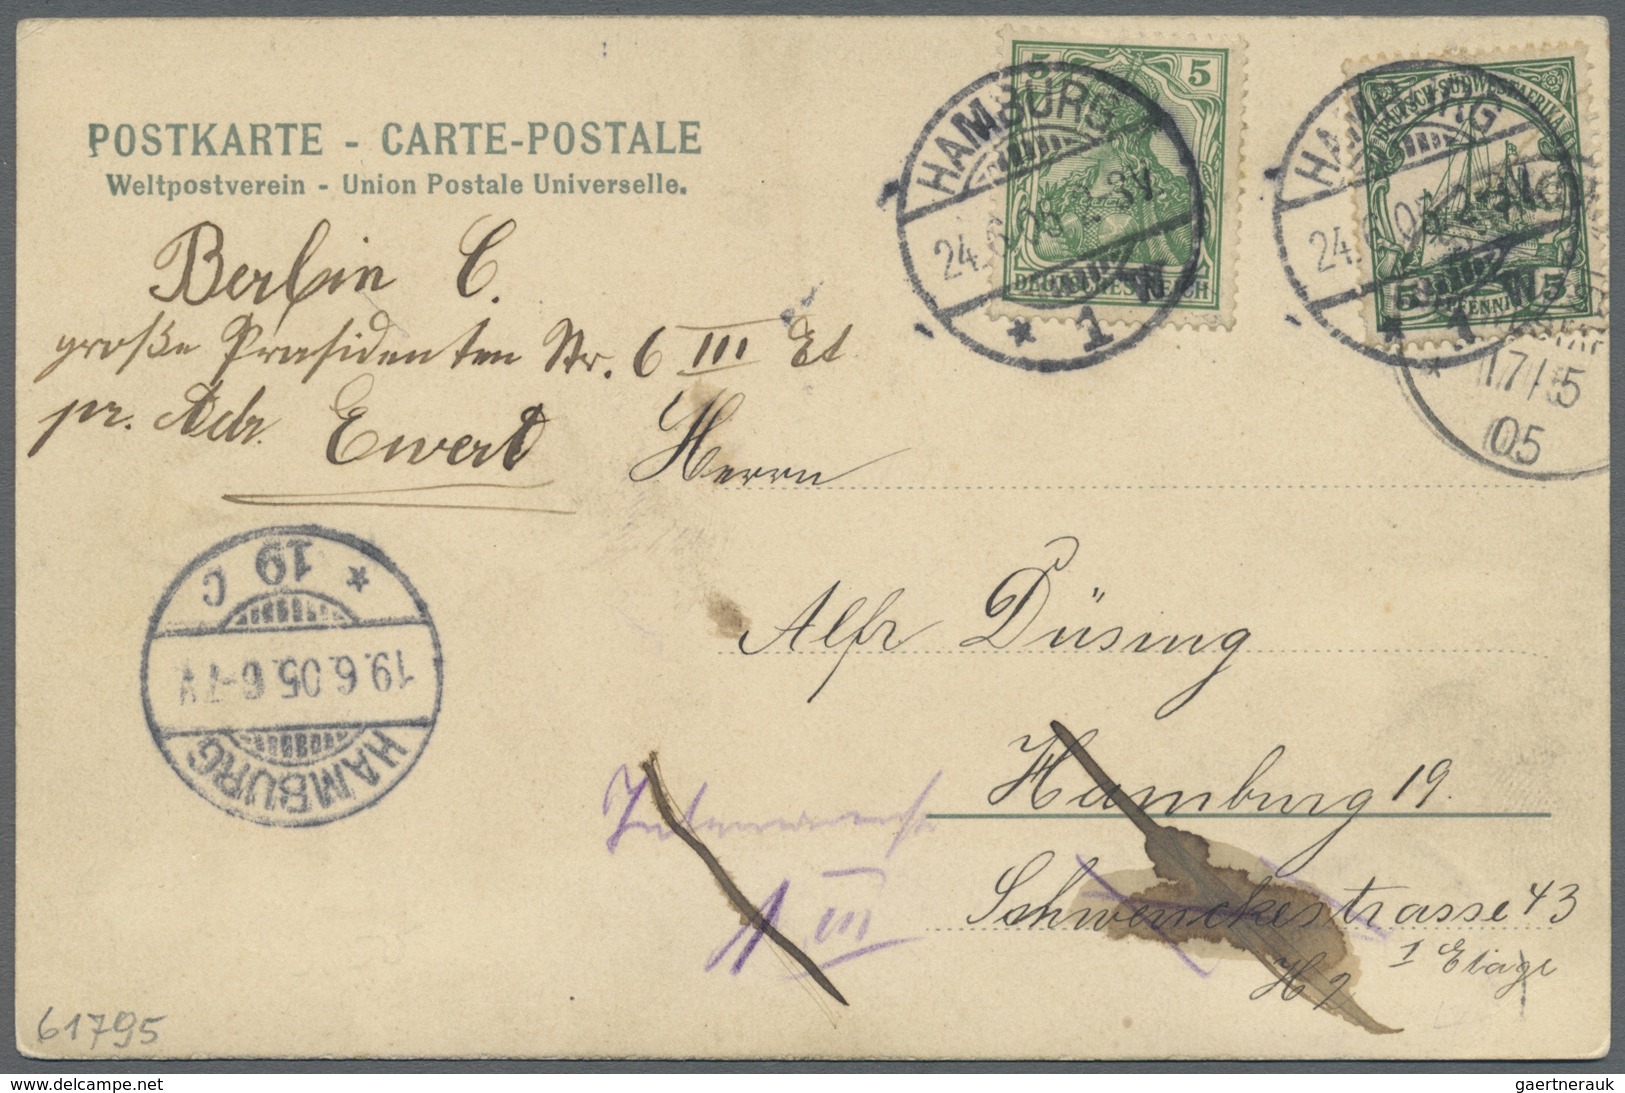 POSTKARTE - CARTE-POSTALE
Weltpostverein - Union Postale Universelle.
5 5
DEUTSCHES REICH
HAMBURG
24.6.05. 2-3V.
* 1 W
DEUTSCH-SÜDWESTAFRIKA
5 PFENNIG 5
HAMBURG
24.
* 1 W
17/5
05
Berlin C.
große Präsidenten Str. 6 III Et
pr. Adr. Ewert
Herrn
Alfr Düsing
Hamburg 19.
Schwenckestrasse 43
1 Etage
H 7
1 III
* 19 C
19.6.05. 6-7 N
HAMBURG
61795
gaertnerauk